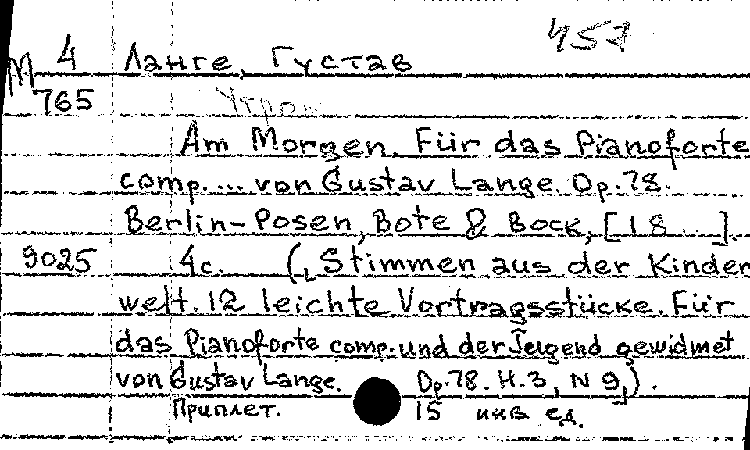 457
M 4 Ланге, Густав
765 Утром
Am Morgen. Für das Pianoforte
comp. ... von Gustav Lange. Op. 78.
Berlin-Posen, Bote & Bock, [18 ].
9025 4c. („Stimmen aus der Kinder
welt. 12 leichte Vortragsstücke. Für
das Pianoforte comp. und der Jeugend gewidmet
von Gustav Lange. Op. 78. H. 3, N 9„).
Приплет. 15 инв ед.